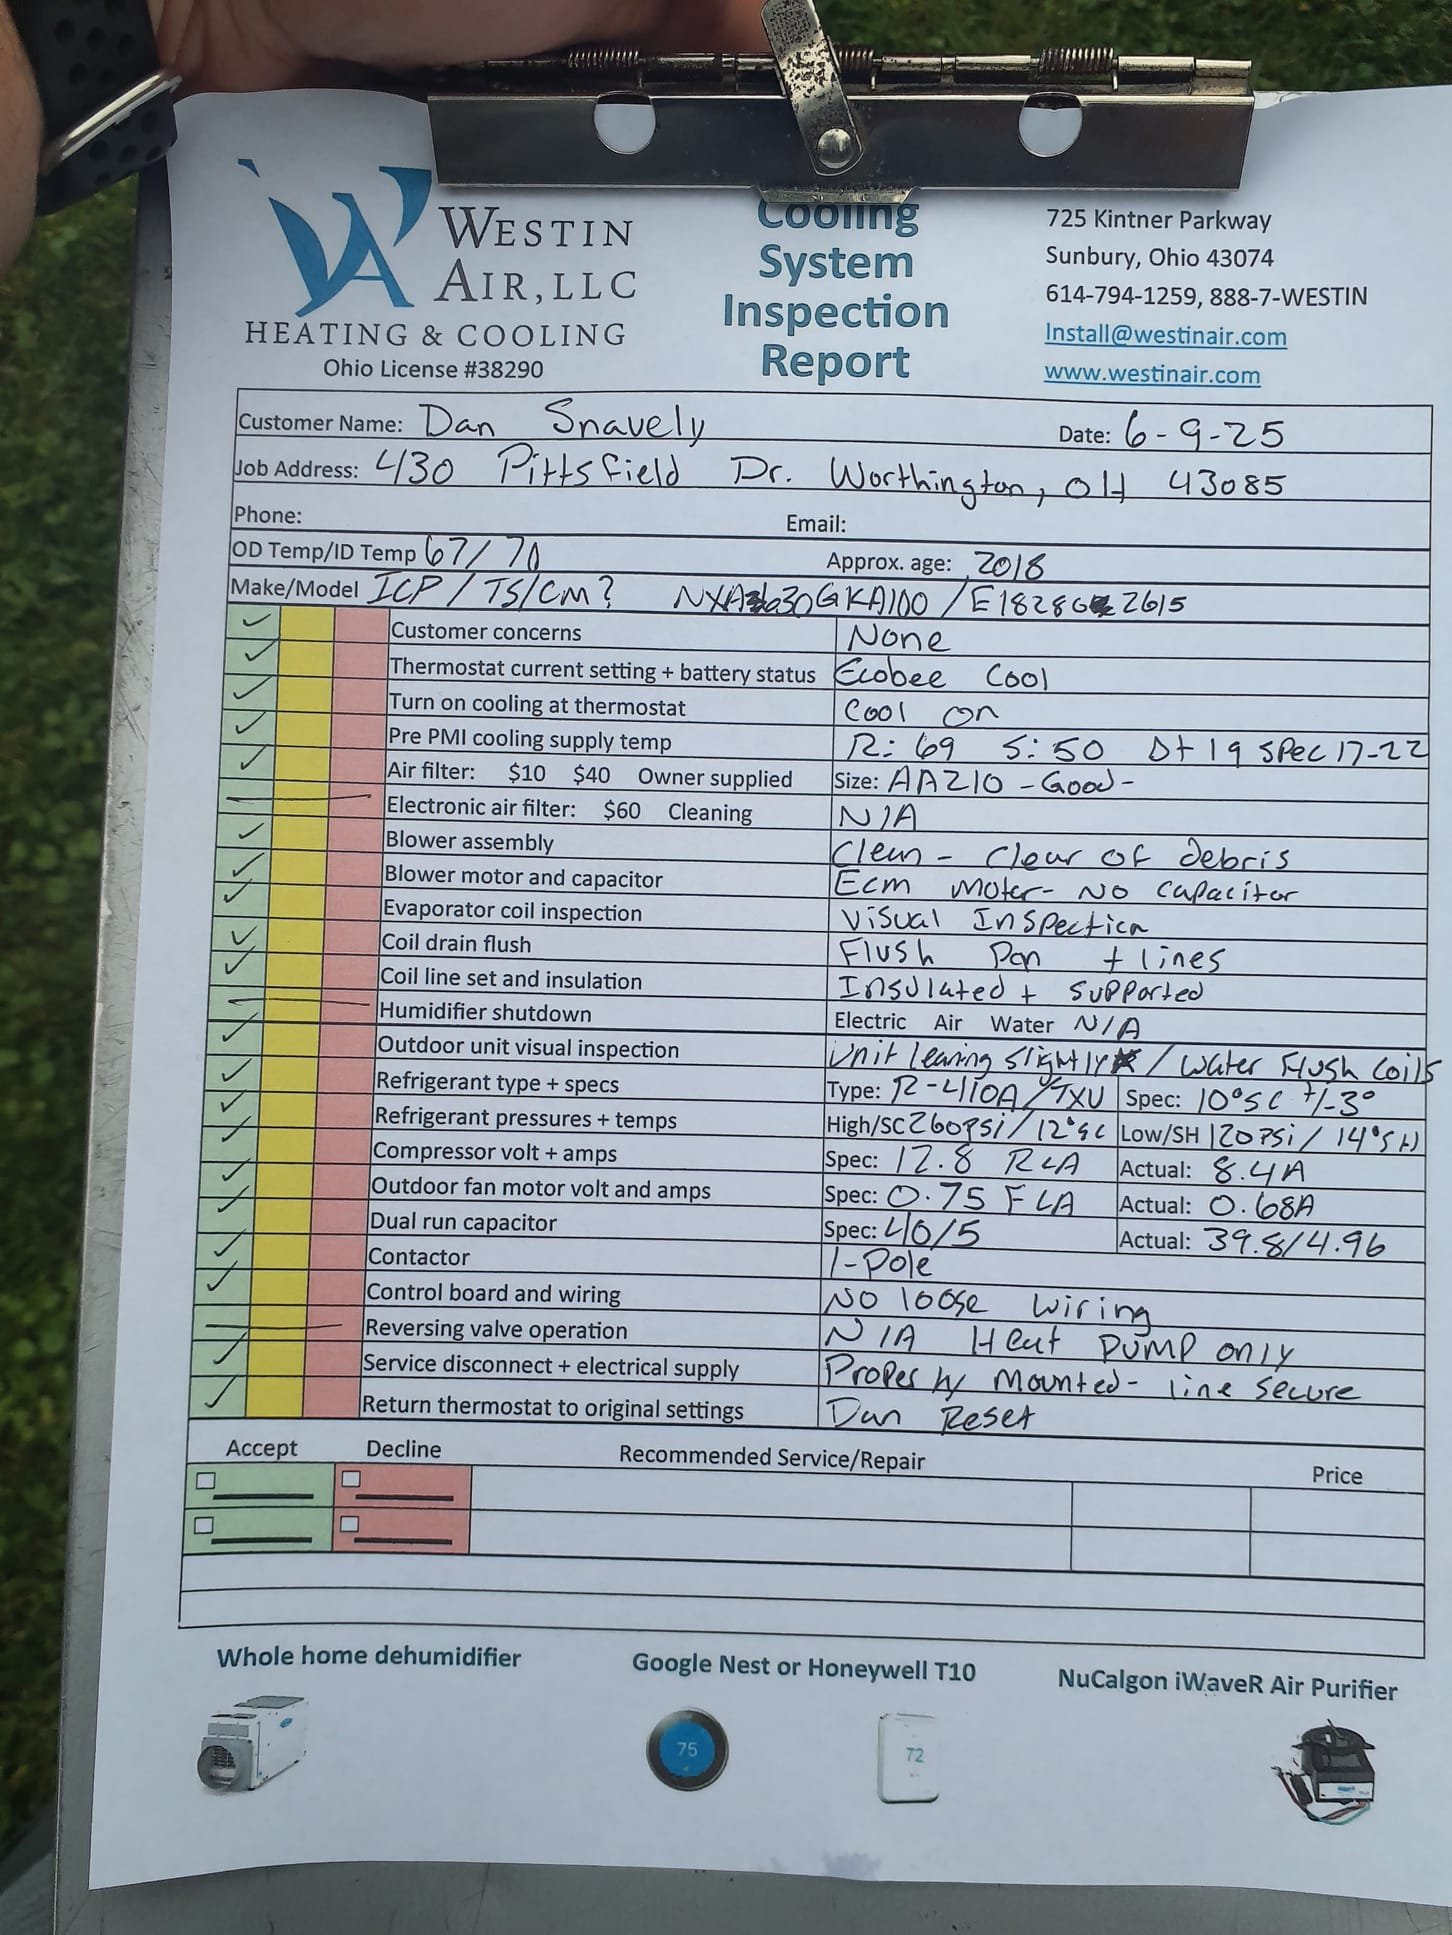 WESTIN
AIR, LLC
HEATING & COOLING
Ohio License #38290
Cooling
System
Inspection
Report
725 Kintner Parkway
Sunbury, Ohio 43074
614-794-1259, 888-7-WESTIN
Install@westinair.com
www.westinair.com
Customer Name: Dan Snavely Date: 6-9-25
Job Address: 430 Pittsfield Dr. Worthington, OH 43085
Phone: Email:
OD Temp/ID Temp 67/70 Approx. age: 2018
Make/Model ICP / TS/CM? /E1828G 2615
Customer concerns None
Thermostat current setting + battery status Ecobee Cool
Turn on cooling at thermostat Cool on
Pre PMI cooling supply temp R: 69 S: 50 Dt 19 Spec 17-22
Air filter: $10 $40 Owner supplied Size: AA210 - Good -
Electronic air filter: $60 Cleaning N/A
Blower assembly Clean - Clear of debris
Blower motor and capacitor Ecm motor - No capacitor
Evaporator coil inspection Visual Inspection
Coil drain flush Flush Pan + lines
Coil line set and insulation Insulated + supported
Humidifier shutdown Electric Air Water N/A
Outdoor unit visual inspection Unit leaning slightly / Water Flush Coils
Refrigerant type + specs Type: R-410A/TXV Spec: 10°SC +/-3°
Refrigerant pressures + temps High/SC 260PSi/12°SC Low/SH 120PSi/14°SH
Compressor volt + amps Spec: 12.8 RLA Actual: 8.4A
Outdoor fan motor volt and amps Spec: 0.75 FLA Actual: 0.68A
Dual run capacitor Spec: 40/5 Actual: 39.8/4.96
Contactor 1-Pole
Control board and wiring No loose wiring
Reversing valve operation N/A Heat Pump only
Service disconnect + electrical supply Properly mounted - line secure
Return thermostat to original settings Dan Reset
Accept Decline Recommended Service/Repair Price
Whole home dehumidifier Google Nest or Honeywell T10 NuCalgon iWaveR Air Purifier
75
72